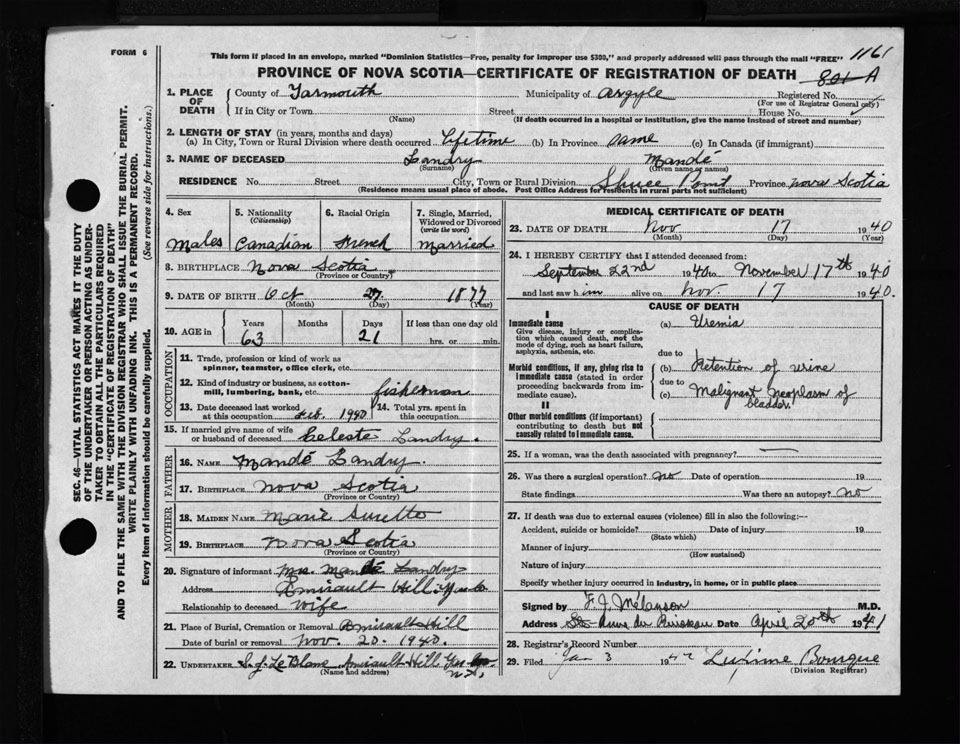 FORM 6
This form if placed in an envelope, marked "Dominion Statistics—Free, penalty for improper use $300," and properly addressed will pass through the mail "FREE"
1161
PROVINCE OF NOVA SCOTIA—CERTIFICATE OF REGISTRATION OF DEATH 801 A
1. PLACE OF DEATH
County of Yarmouth Municipality of Argyle Registered No.
(For use of Registrar General only)
If in City or Town Street House No.
(Name) (If death occurred in a hospital or institution, give the name instead of street and number)
2. LENGTH OF STAY (in years, months and days)
(a) In City, Town or Rural Division where death occurred Lifetime (b) In Province same (c) In Canada (if immigrant)
3. NAME OF DECEASED Landry Mandé
(Surname) (Given name or names)
RESIDENCE No. Street City, Town or Rural Division Spruce Point Province Nova Scotia
(Residence means usual place of abode. Post Office Address for residents in rural parts not sufficient)
4. Sex 5. Nationality (Citizenship) 6. Racial Origin 7. Single, Married, Widowed or Divorced (write the word)
Males Canadian French Married
8. BIRTHPLACE Nova Scotia
(Province or Country)
9. DATE OF BIRTH Oct 27 1877
(Month) (Day) (Year)
10. AGE in Years Months Days If less than one day old
63 21 hrs. or min.
OCCUPATION
11. Trade, profession or kind of work as spinner, teamster, office clerk, etc.
12. Kind of industry or business, as cotton-mill, lumbering, bank, etc. fisherman
13. Date deceased last worked at this occupation Feb. 1940 14. Total yrs. spent in this occupation
15. If married give name of wife or husband of deceased Celeste Landry.
FATHER
16. NAME Mandé Landry.
17. BIRTHPLACE Nova Scotia
(Province or Country)
MOTHER
18. MAIDEN NAME Marie Surette
19. BIRTHPLACE Nova Scotia
(Province or Country)
20. Signature of informant Mrs. Mandé Landry
Address Amirault Hill Yar Co
Relationship to deceased wife
21. Place of Burial, Cremation or Removal Amirault Hill
Date of burial or removal Nov. 20. 1940.
22. UNDERTAKER S. J. LeBlanc Amirault Hill Yar Co.
(Name and address) N.S.
MEDICAL CERTIFICATE OF DEATH
23. DATE OF DEATH Nov 17 1940
(Month) (Day) (Year)
24. I HEREBY CERTIFY that I attended deceased from:
September 22nd 1940 to November 17th 1940
and last saw him alive on Nov. 17 1940.
CAUSE OF DEATH
I
Immediate cause
Give disease, injury or complication which caused death, not the mode of dying, such as heart failure, asphyxia, asthenia, etc.
(a) Uremia
due to
Morbid conditions, if any, giving rise to immediate cause (stated in order proceeding backwards from immediate cause).
(b) Retention of urine
due to
(c) Malignant neoplasm of bladder
II
Other morbid conditions (if important) contributing to death but not causally related to immediate cause.
25. If a woman, was the death associated with pregnancy?
26. Was there a surgical operation? No Date of operation 19
State findings Was there an autopsy? No
27. If death was due to external causes (violence) fill in also the following:—
Accident, suicide or homicide? Date of injury 19
(State which)
Manner of injury
(How sustained)
Nature of injury
Specify whether injury occurred in industry, in home, or in public place
Signed by F. J. Mélanson M.D.
Address Ste Anne du Ruisseau Date April 20th 1941
28. Registrar's Record Number
29. Filed Jan 3 194 Bourque
(Division Registrar)
SEC. 46—VITAL STATISTICS ACT MAKES IT THE DUTY
OF THE UNDERTAKER OR PERSON ACTING AS UNDER-
TAKER TO OBTAIN ALL THE PARTICULARS REQUIRED
IN THE "CERTIFICATE OF REGISTRATION OF DEATH"
AND TO FILE THE SAME WITH THE DIVISION REGISTRAR WHO SHALL ISSUE THE BURIAL PERMIT.
WRITE PLAINLY WITH UNFADING INK. THIS IS A PERMANENT RECORD.
Every item of information should be carefully supplied. (See reverse side for instructions.)